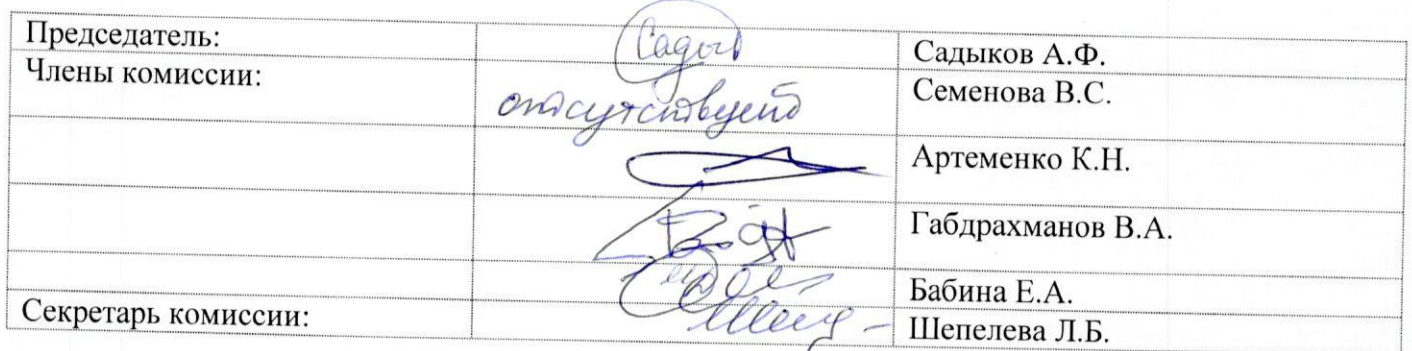 Председатель: Садыков А.Ф.
Члены комиссии: отсутствует Семенова В.С.
Артеменко К.Н.
Габдрахманов В.А.
Бабина Е.А.
Секретарь комиссии: Шепелева Л.Б.